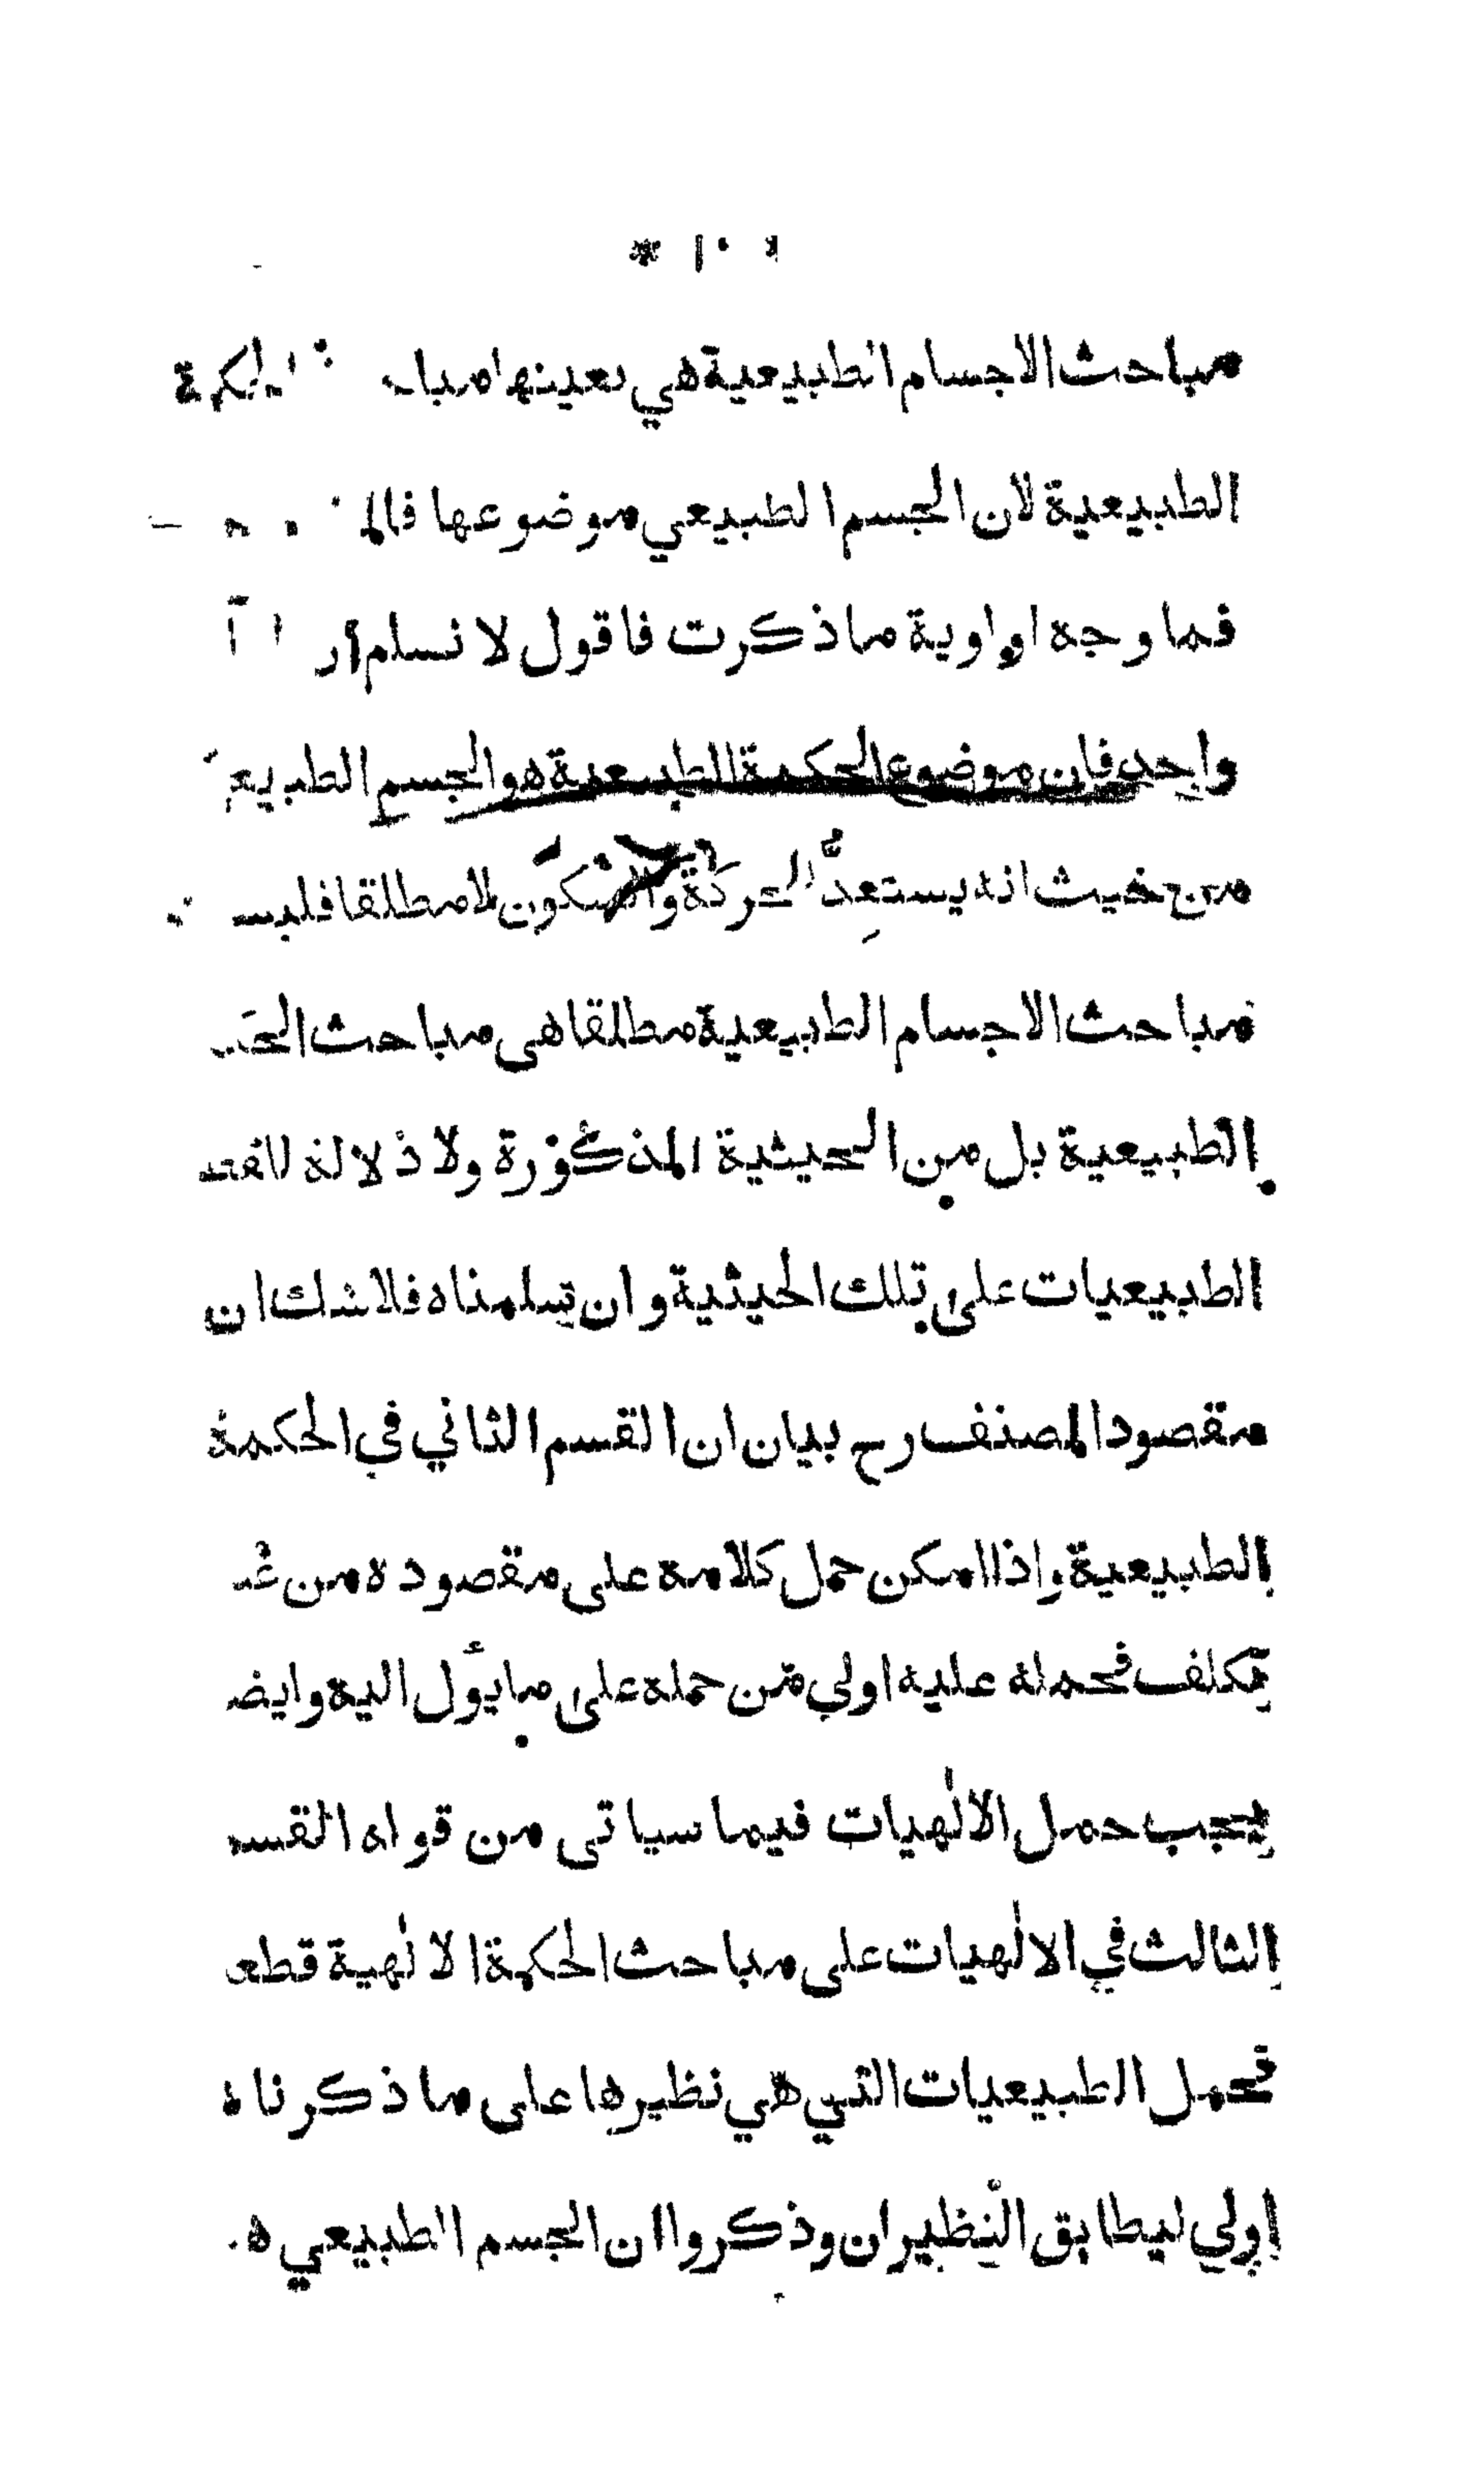 * ١٠ *
مباحث الاجسام الطبيعية هي بعينها الحكمة
الطبيعية لان الجسم الطبيعي موضوعها
فما وجه اولوية ما ذكرت فاقول لا نسلم
واحد فان موضوع الحكمة الطبيعية هو الجسم الطبيعي
من حيث انه يستعد للحركة والسكون لا مطلقا
مباحث الاجسام الطبيعية مطلقا هي مباحث
الطبيعية بل من الحيثية المذكورة ولا دلالة
الطبيعيات على تلك الحيثية وان سلمناه فلا شك ان
مقصود المصنف رح بيان ان القسم الثاني في الحكمة
الطبيعية واذا امكن حمل كلامه على مقصوده من
تكلف فحمله عليه اولي من حمله على ما يؤل اليه وايض
يجب حمل الالٰهيات فيما سياتى من قوله القسم
الثالث في الالٰهيات على مباحث الحكمة الالٰهية قطعا
فحمل الطبيعيات التي هي نظيرها على ما ذكرناه
اولي ليطابق النظيران وذكروا ان الجسم الطبيعي